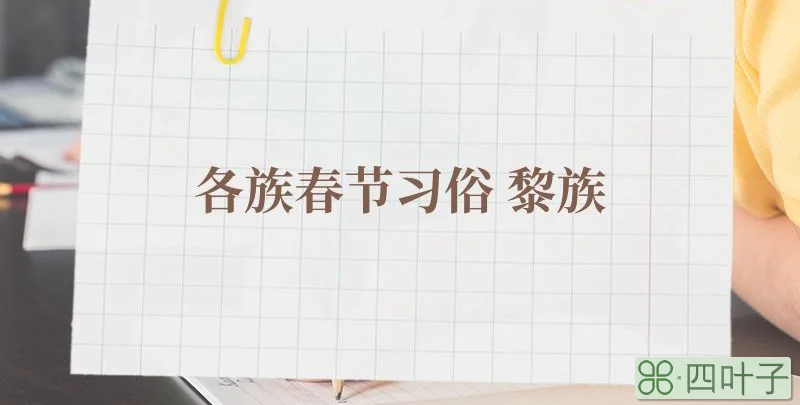 各族春节习俗 黎族
四叶子